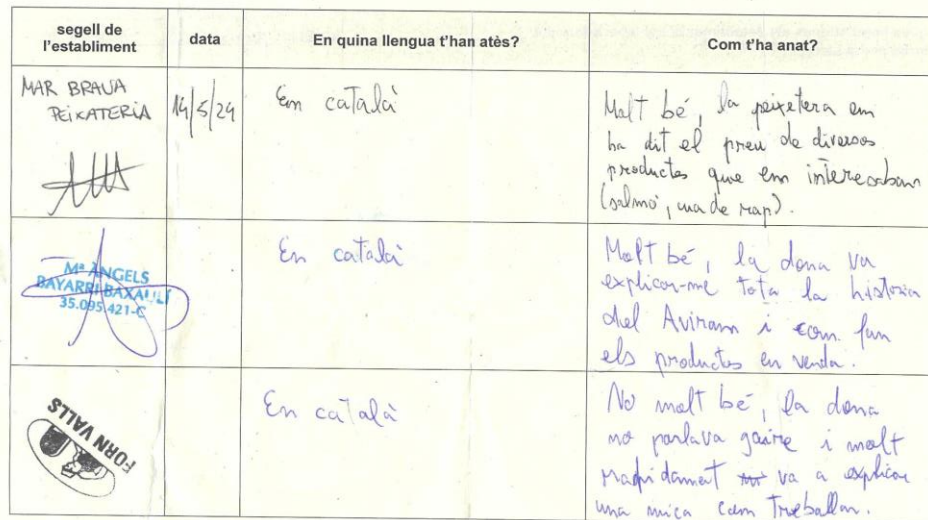 segell de
l'establiment
data
En quina llengua t'han atès?
Com t'ha anat?
MAR BRAVA
PEIXATERIA
14/5/24
En català
Molt bé, la peixetera em
ha dit el preu de diversos
productes que em interesaban
(salmó, cua de rap).
Mª ÀNGELS
BAYARRI BAXAULI
35.095.421-C
En català
Molt bé, la dona va
explicar-me tota la historia
del Aviram i com fan
els productes en venda.
FORN VALLS
En català
No molt bé, la dona
no parlava gaire i molt
rapidament va a explicar
una mica com treballan.